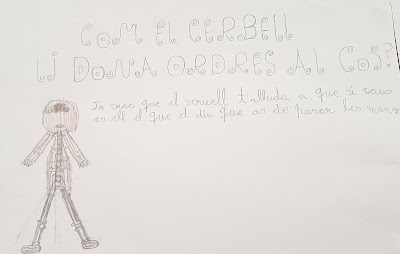 COM EL CERBELL
LI DONA ORDRES AL COS?
Jo crec que el servell t'alluda a que si caus
es ell el que et diu que as de parar les mans